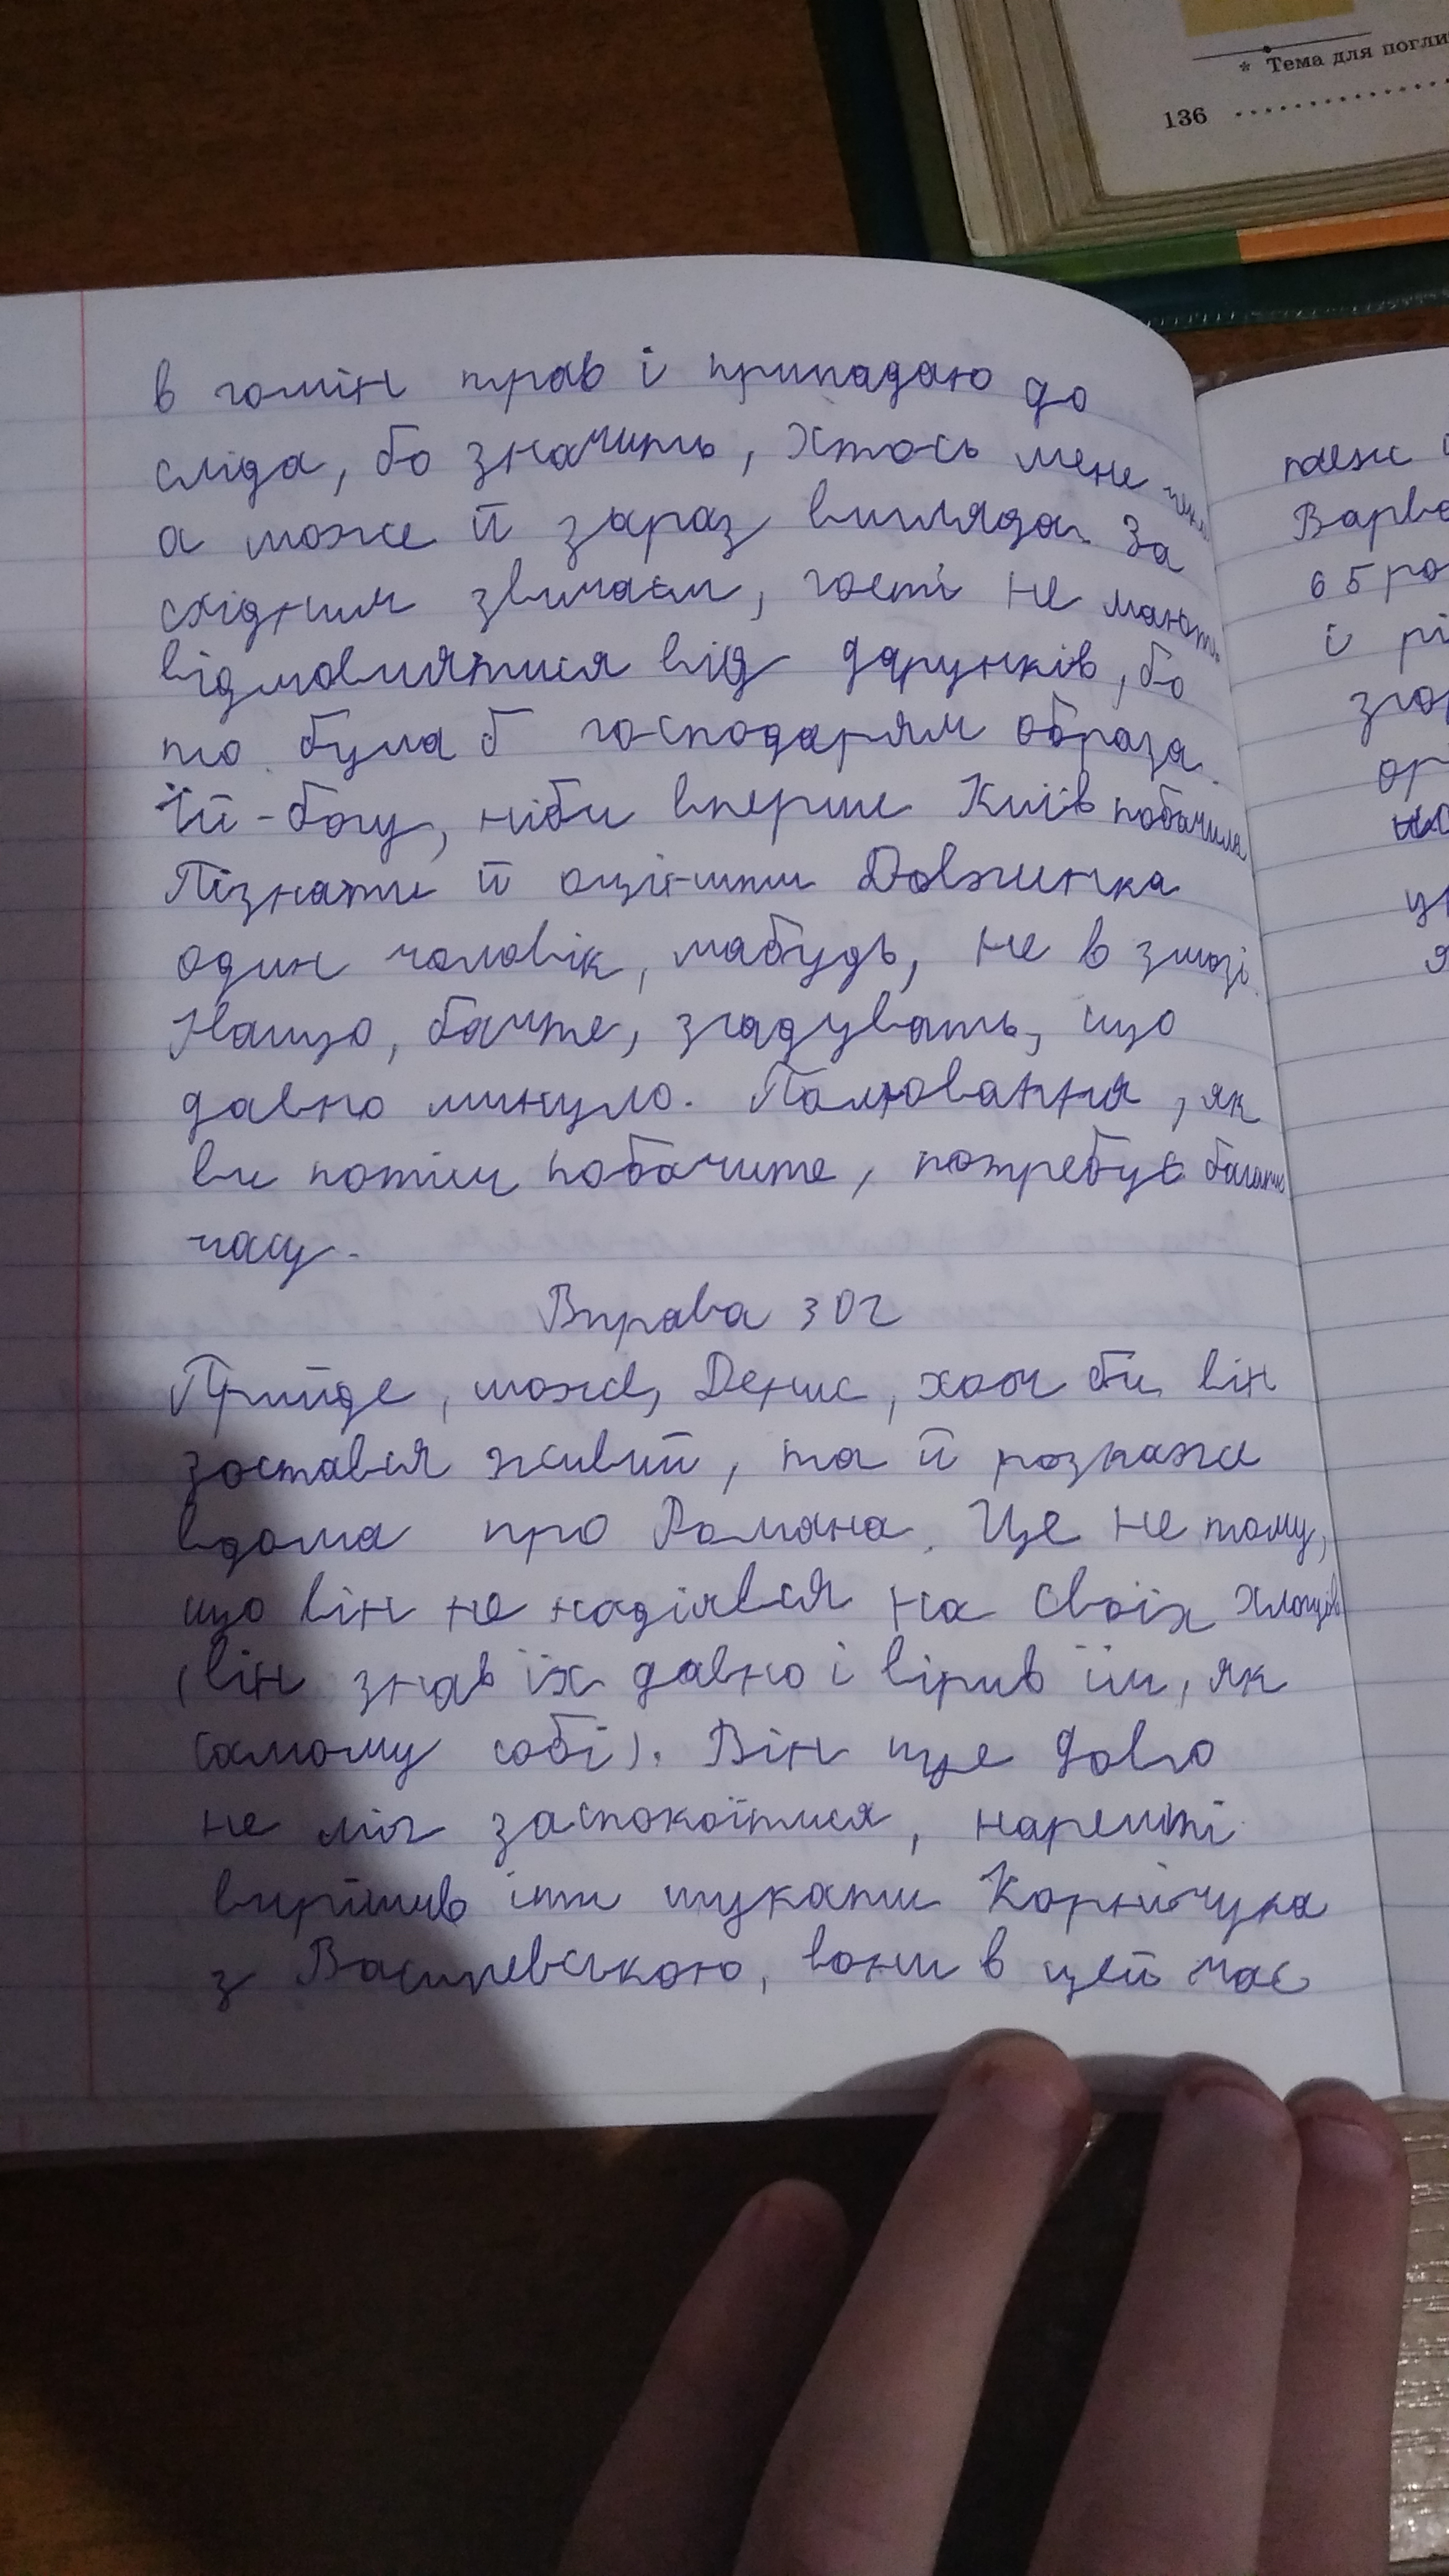 * Тема для погли
136
в гомін трав і припадаю до
сліда, бо значить, хтось мене
а може й зараз вигляда. За
східним звичаєм, гості не мають
відмовлятися від дарунків, бо
то була б господарям образа.
Їй-богу, ніби вперше Київ побачила
Пізнати й оцінити Довженка
один чоловік, мабудь, не в змозі.
Нащо, бачте, згадувать, що
давно минуло. Полювання, як
ви потім побачите, потребує багато
часу.
Вправа 302
Прийде, може, Денис, хоч би він
зостався живий, та й розкаже
вдома про Романа. Це не тому,
що він не надіявся на своїх хлопців
(він знав їх давно і вірив їм, як
самому собі). Він ще довго
не міг заспокоїтися, нарешті
вирішив іти шукати Корнійчука
з Василевською, вони в цей час
теж
Варва
65 ро
і рі
згор
ор
на